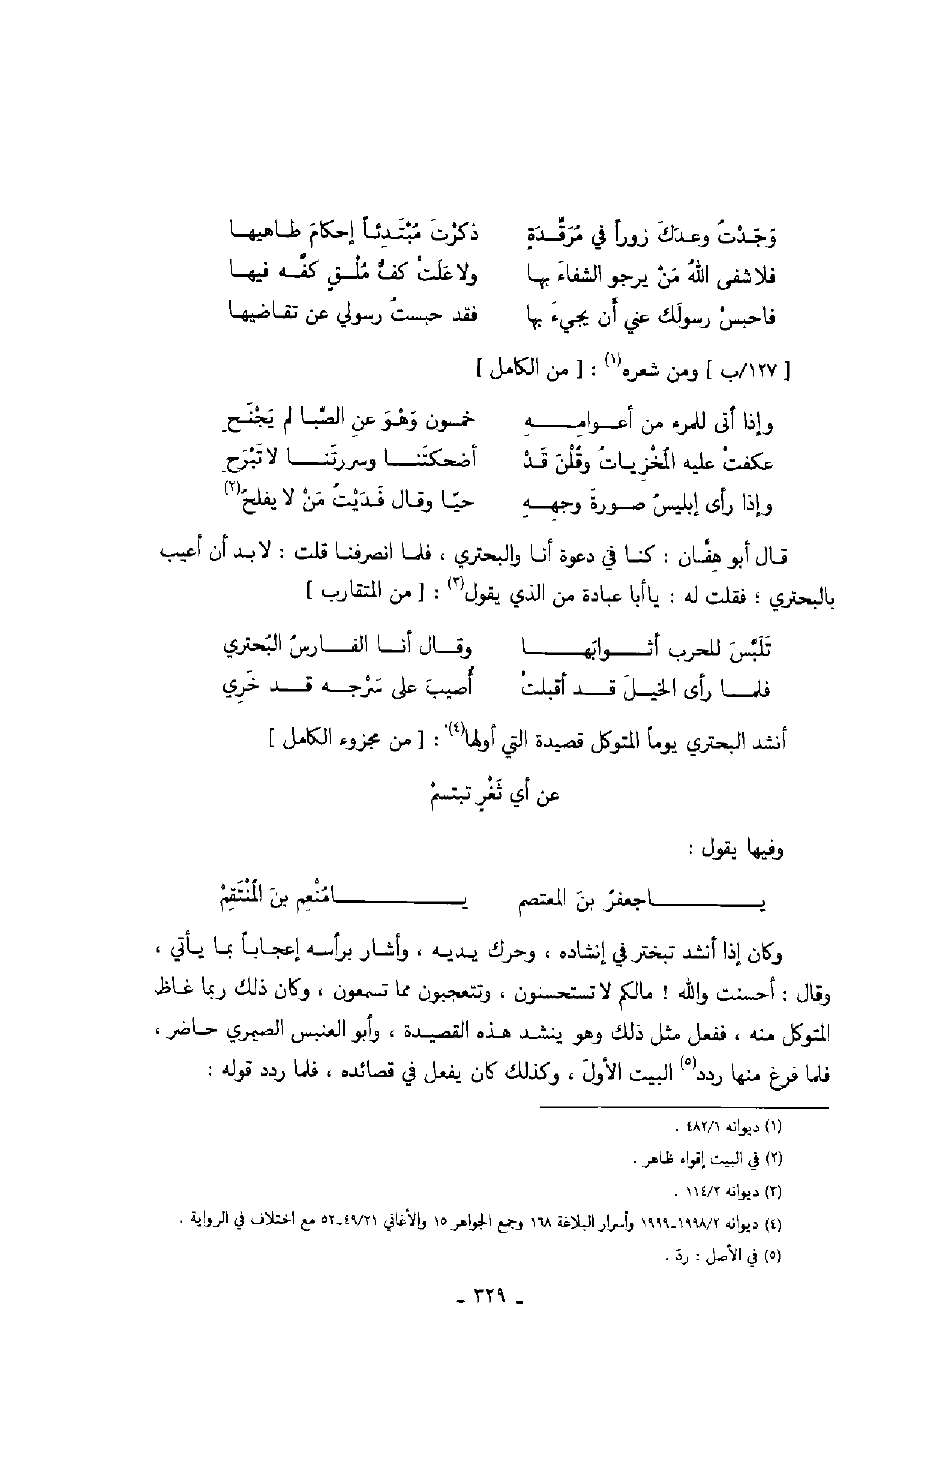 وَجَدْتُ وعدَكَ زوراً في مُرَقَّدةٍ ذكرْتَ مُبْتَدِئاً إحكامَ طاهيها
فلا شفى اللهُ مَنْ يرجو الشفاءَ بها ولا عَلَتْ كفُّ مُلْقٍ كفَّه فيها
فاحبسْ رسولَك عني أن يجيءَ بها فقد حبستُ رسولي عن تقاضيها
[ ١٢٧/ب ] ومن شعره(١) : [ من الكامل ]
وإذا أتى للمرء من أعوامِهِ خمسون وَهْوَ عنِ الصِّبا لم يَجْنَحِ
عكفتْ عليه المُخْزِياتُ وقُلْنَ قَدْ أضحكتَنا وسررتَنا لا تَبْرَحِ
وإذا رأى إبليسُ صورةَ وجهِهِ حيّا وقال فَدَيْتُ مَنْ لا يفلحُ(٢)
قال أبو هِفّان : كنا في دعوة أنا والبحتري ، فلما انصرفنا قلت : لابد أن أعيب
بالبحتري ؛ فقلت له : ياأبا عبادة من الذي يقول(٣) : [ من المتقارب ]
تَلَبَّسَ للحرب أثوابَها وقال أنا الفارسُ البُحتري
فلما رأى الخيلَ قد أقبلتْ أُصيبَ على سَرْجِه قد خَرِي
أنشد البحتري يوماً المتوكل قصيدة التي أولها(٤) : [ من مجزوء الكامل ]
عن أي ثَغْرٍ تبتسمْ
وفيها يقول :
ياجعفرُ بنَ المعتصم يامُنْعِم بنَ المُنْتَقِمْ
وكان إذا أنشد تبختر في إنشاده ، وحرك يديه ، وأشار برأسه إعجاباً بما يأتي ،
وقال : أحسنت والله ! مالكم لا تستحسنون ، وتتعجبون مما تسمعون ، وكان ذلك ربما غاظ
المتوكل منه ، ففعل مثل ذلك وهو ينشد هذه القصيدة ، وأبو العنبس الصيمري حاضر ،
فلما فرغ منها ردد(٥) البيت الأولَ ، وكذلك كان يفعل في قصائده ، فلما ردد قوله :
(١) ديوانه ٤٨٢/١ .
(٢) في البيت إقواء ظاهر .
(٣) ديوانه ١١٤/٢ .
(٤) ديوانه ١٩٩٨/٢_١٩٩٩ وأسرار البلاغة ١٦٨ وجمع الجواهر ١٥ والأغاني ٤٩/٢١_٥٢ مع اختلاف في الرواية .
(٥) في الأصل : ردَ .
_ ٣٢٩ _